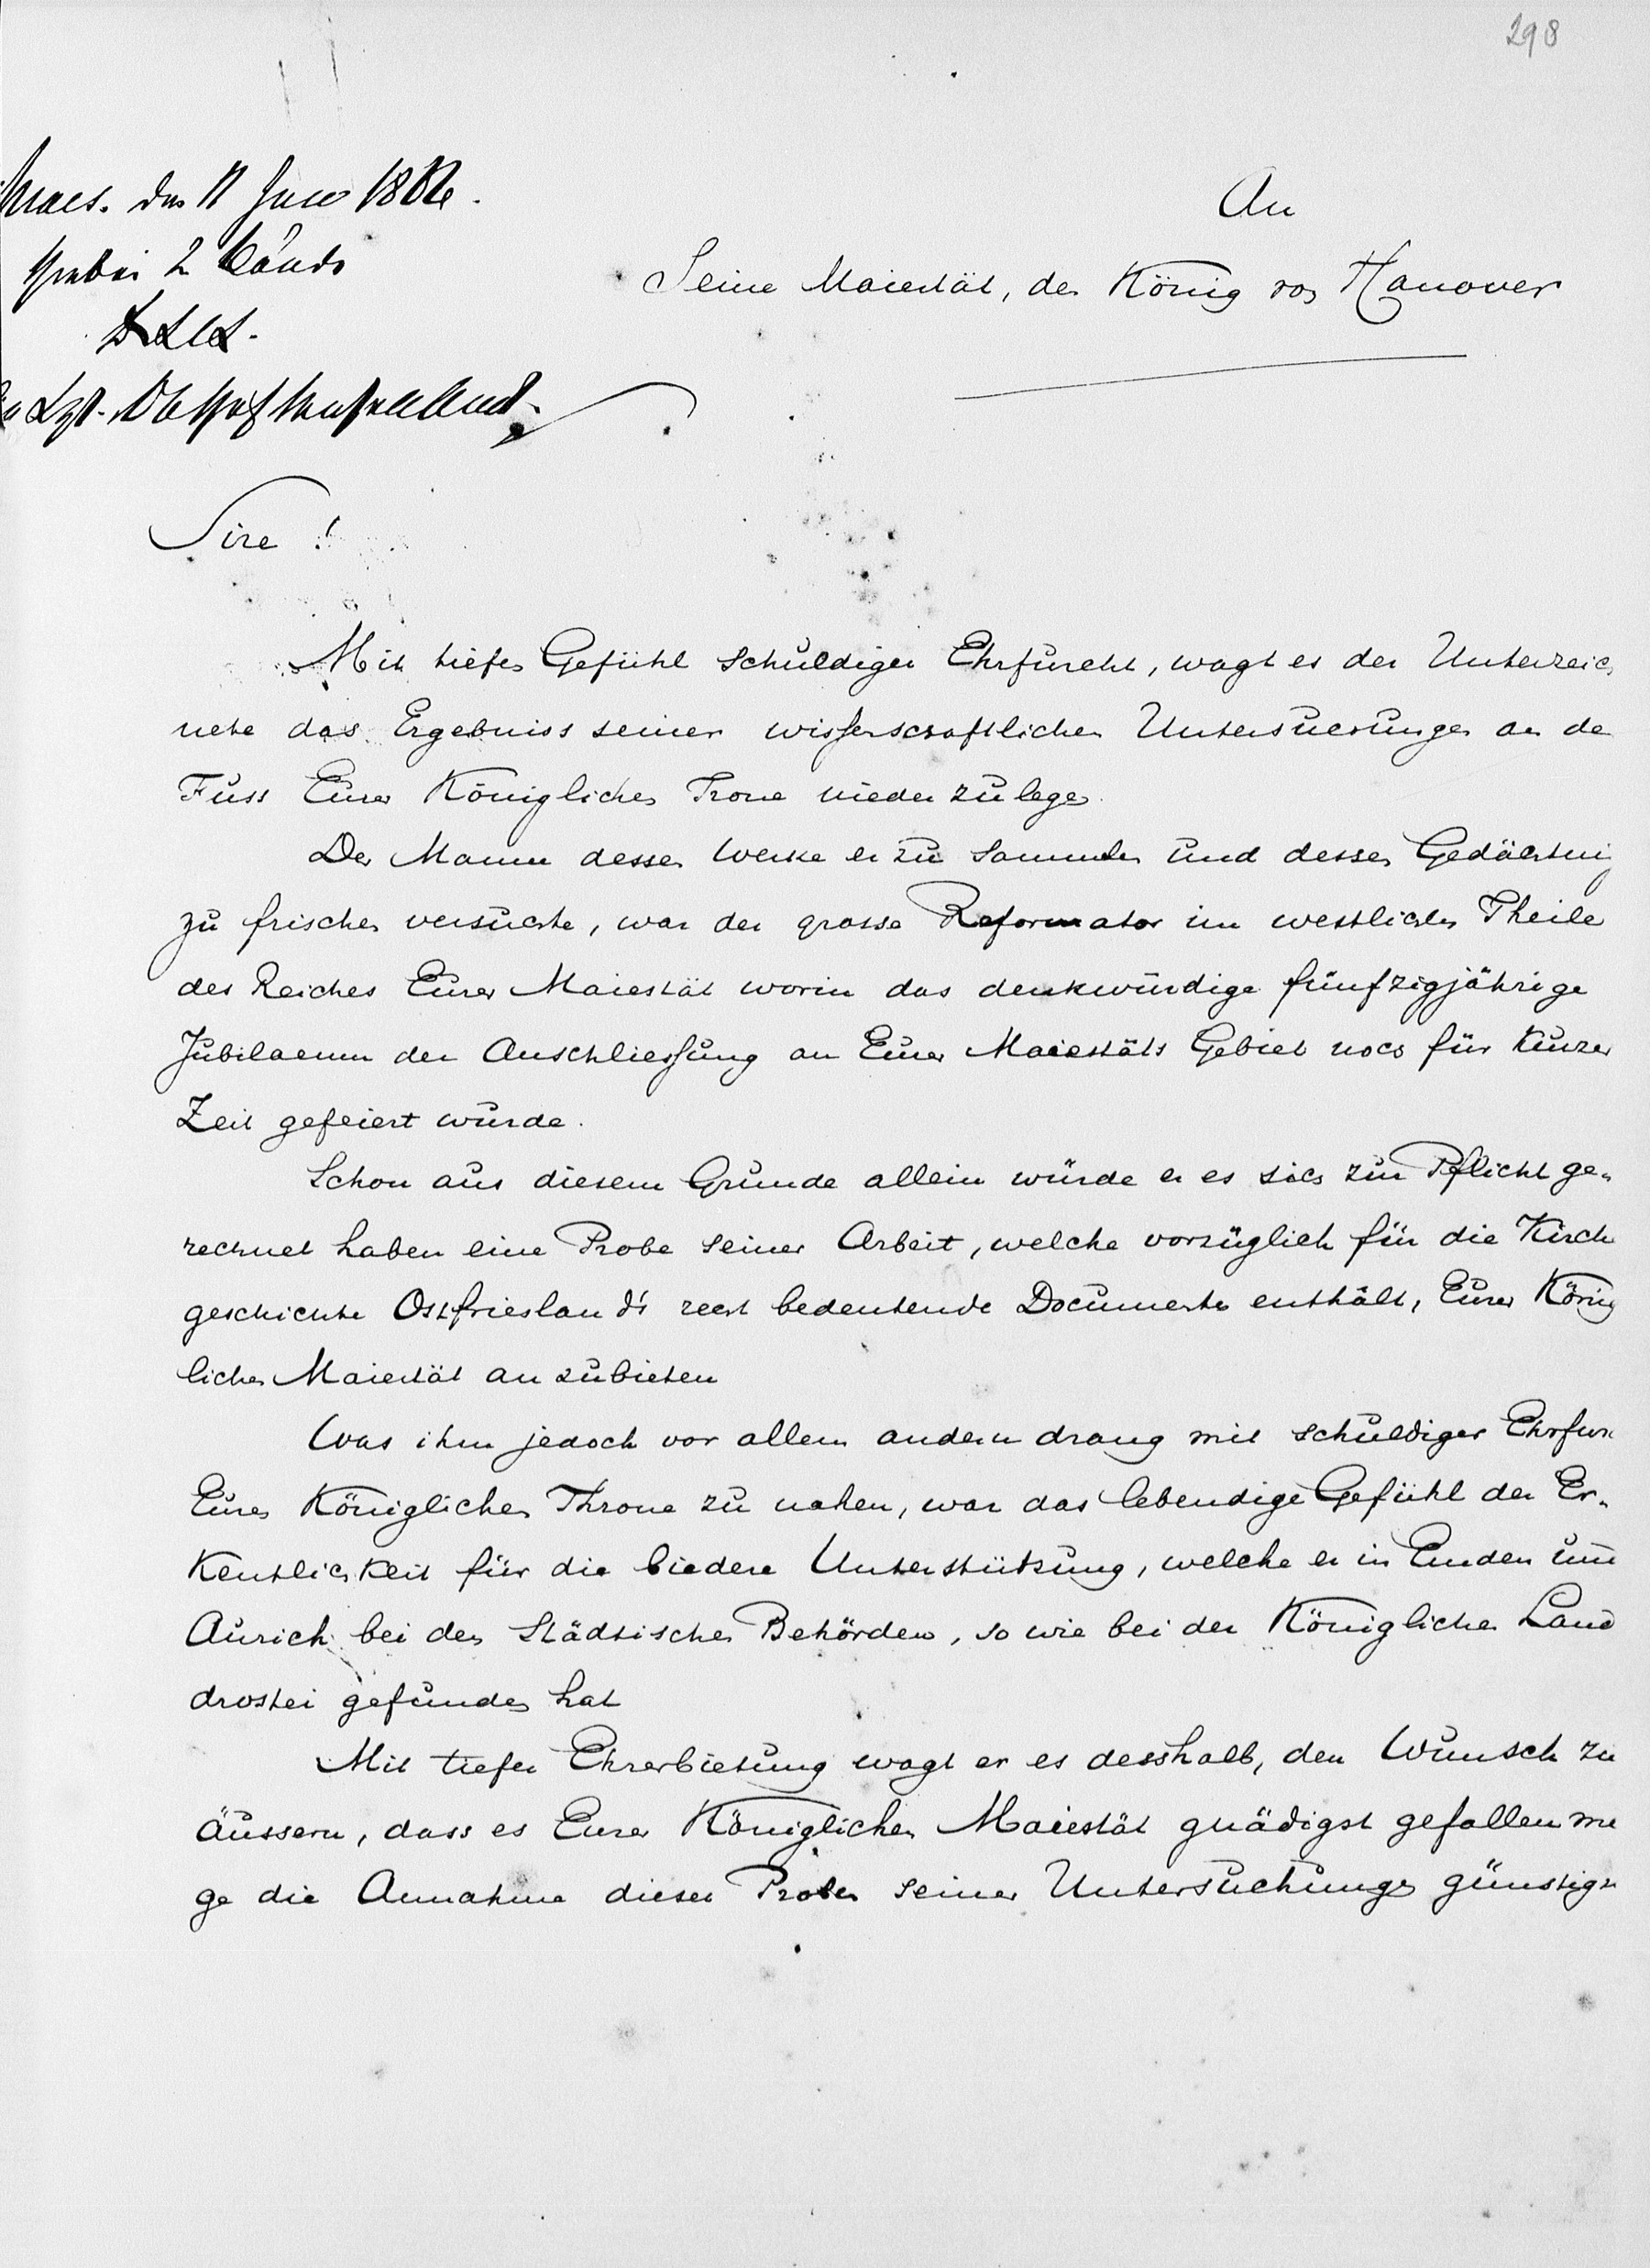 298
An
Seine Maiestät, den König von Hanover
Sire!
Mit tiefen Gefühl schuldiger Ehrfurcht, wagt es der Unterzeich
nete das Ergebniss seiner wissenschaftlichen Untersuchungen an de
Fuss Eures Königlichen Trone nieder zu legen.
Der Mann dessen Werke er zu sammeln und dessen Gedächtni
zu frischen versuchte, war der grosse Reformator im westlichen Theile
des Reiches Eurer Maiestät worin das denkwürdige fünfzigjährige
Jubilaeum der Anschliessung an Eurer Maiestäts Gebiet noch für kurzer
Zeit gefeiert wurde.
Schon aus diesem Grunde allein würde er es sich zur Pflicht ge-
rechnet haben eine Probe seiner Arbeit, welche vorzüglich für die Kirch
geschichte Ostfriesland's recht bedeutende Documente enthält, Eurer König
lichen Maiestät anzubieten
Was ihm jedoch vor allem andern drang mit schuldiger Ehrfur
Eures Königlichen Throne zu nahen, war das lebendige Gefühl der Er-
kentlichkeit für die biedere Unterstützung, welche er in Emden und
Aurich bei den Städtischen Behörden, so wie bei der Königlichen Land
drostei gefunden hat
Mit tiefer Ehrerbietung wagt er es desshalb, den Wunsch zu
äussern, dass es Eurer Königlichen Maiestät gnädigst gefallen mö
ge die Annahme dieser Proben seiner Untersuchungen günstigst